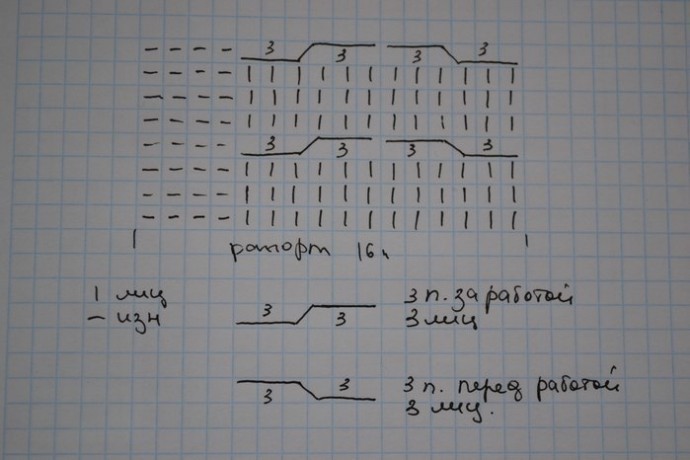 3 3 3 3
3 3 3 3
рапорт 16п
| лиц
– изн
3 3
3 п. за работой
3 лиц
3 3
3 п. перед работой
3 лиц.